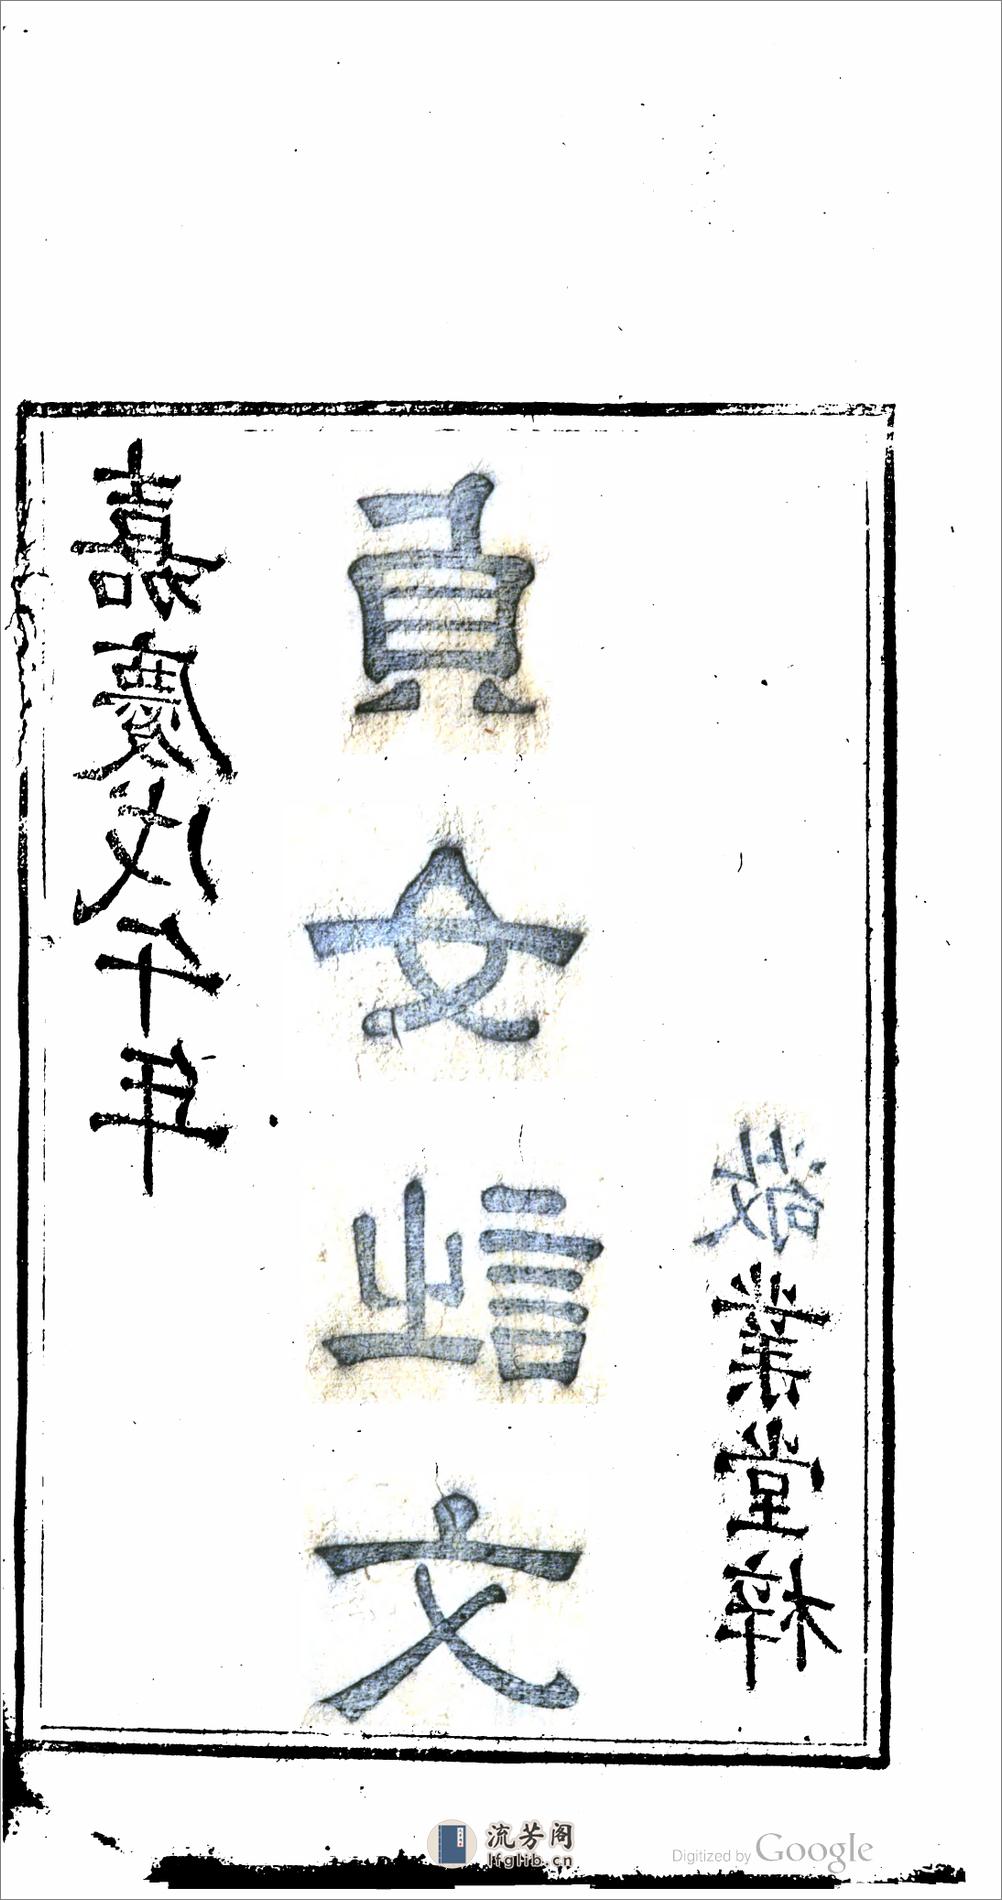 嘉慶戊午年
貞女詩文
敬業堂梓
流芳阁
lfglib.cn
Digitized by Google